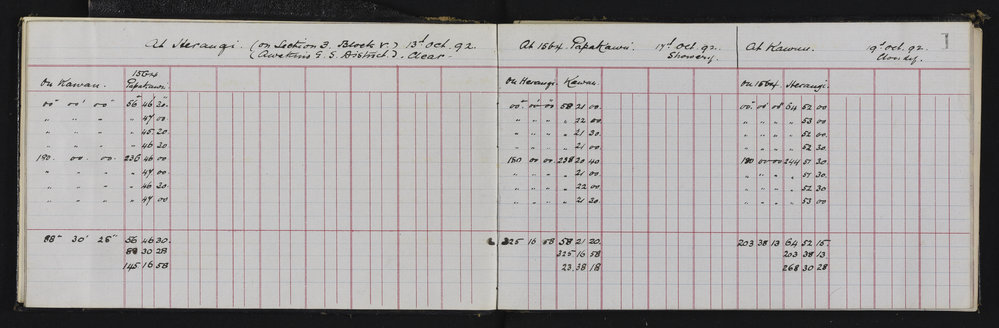 At Herangi. (on Section 3. Block V.) 13th Oct. 92.
(Awakino S. S. District.). Clear.
1564
On Kawau. Papakauri.
00° 00' 00" 56° 46' 30"
" " " " 47 00
" " " " 45 20
" " " " 46 30
180 00 00 236 46 00
" " " " 47 00
" " " " 46 30
" " " " 47 00
88° 30' 28" 56 46 30
88 30 28
145 16 58
At 1564. Papakauri. 17th Oct. 92.
Showery.
On Herangi. Kawau.
00° 00' 00" 58 21 00
" " " " 22 00
" " " " 21 30
" " " " 21 00
180 00 00 238 20 40
" " " " 21 00
" " " " 22 00
" " " " 21 30
325 16 58 58 21 20
325 16 58
23 38 18
1
At Kawau. 19th Oct. 92.
Cloudy.
On 1564 Herangi.
00° 00' 00" 64 52 00
" " " " 53 00
" " " " 52 00
" " " " 52 30
180 00 00 244 51 30
" " " " 51 30
" " " " 52 30
" " " " 53 00
203 38 13 64 52 15
203 38 13
268 30 28